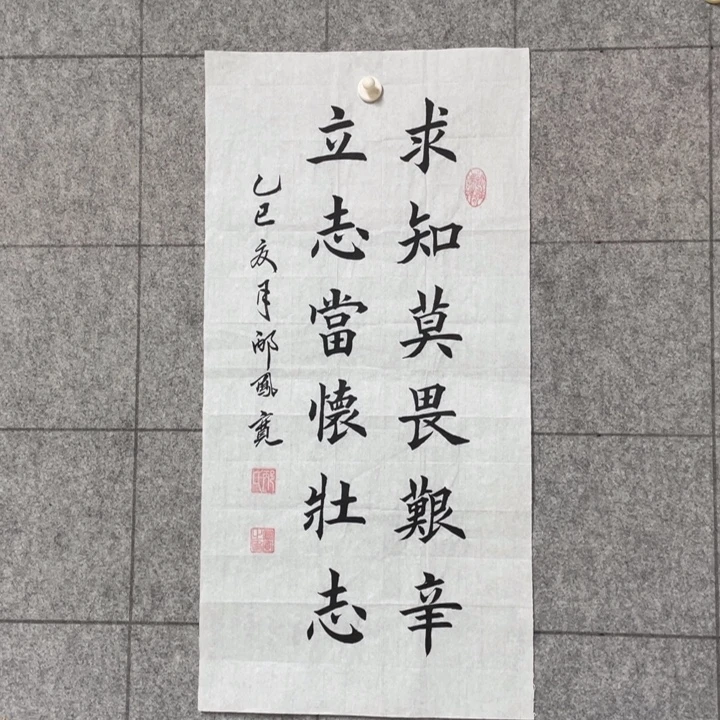 求知莫畏艱辛
立志當懷壯志
乙巳亥月邴鳳寬